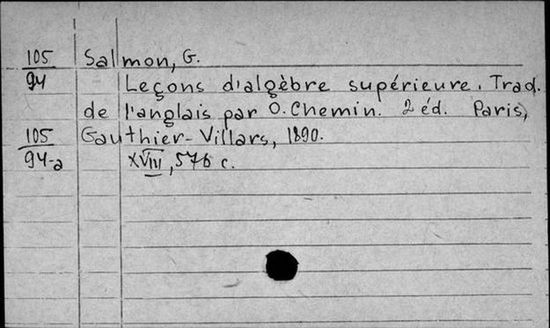 105 Salmon, G.
94 Leçons d'algèbre supérieure. Trad.
de l'anglais par O. Chemin. 2 éd. Paris,
105 Gauthier-Villars, 1890.
94-a XVIII, 576 c.